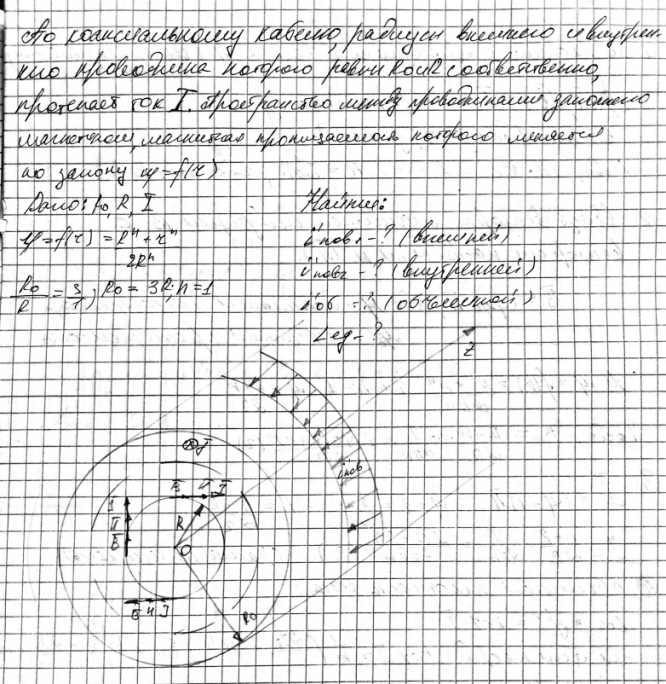 По коаксиальному кабелю, радиусы внешнего и внутрен-
него проводника которого равны R₀ и R соответственно,
протекает ток I. Пространство между проводниками заполнено
магнетиком, магнитная проницаемость которого меняется
по закону μ=f(r)
Дано: R₀, R, I
μ=f(r) = (Rⁿ + rⁿ)/(2Rⁿ)
R₀/R = 3/1; R₀ = 3R; n=1
Найти:
i'пов1 - ? (внешней)
i'пов2 - ? (внутренней)
i'об - ? (объемной)
Lед - ?
Z
i'пов
⊗J
B H J
J
H
B
R
O
B H J
R0